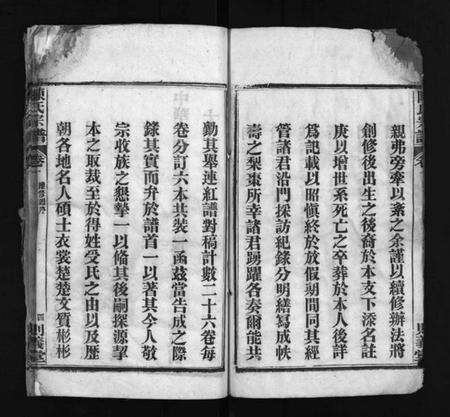 親弗旁牽以紊之余謹以續修辦法將
創修後出生之後裔於本支下添名註
庚以增世系死亡之卒葬於本人後詳
爲記載以昭愼終於放假期間同其經
管諸君沿門採訪紀錄分明繕寫成帙
壽之梨棗所幸諸君踴躍各奏爾能共
勷其舉連紅譜對稿計數二十六卷每
卷分訂六本共裝一函茲當告成之際
錄其實而弁於譜首一以著其今人敬
宗收族之懇摯一以備其後嗣探源挈
本之取裁至於得姓受氏之由以及歷
朝各地名人碩士衣裳楚楚文質彬彬
氏宗譜 卷
四 則義堂